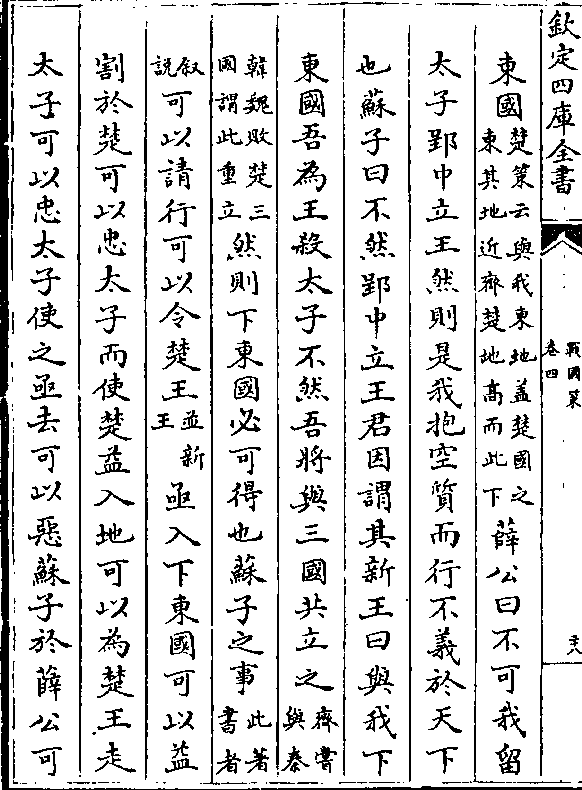 欽定四庫全書
戰國策
卷四
東國楚策云與我東地蓋楚國之
東其地近齊楚地高而此下薛公曰不可我留
太子郢中立王然則是我抱空質而行不義於天下
也蘇子曰不然郢中立王君因謂其新王曰與我下
東國吾為王殺太子不然吾將與三國共立之齊嘗
與秦
韓魏敗楚三
國謂此重立然則下東國必可得也蘇子之事此著
書者
叙
說可以請行可以令楚王並新
王亟入下東國可以益
割於楚可以忠太子而使楚益入地可以為楚王走
太子可以忠太子使之亟去可以惡蘇子於薛公可